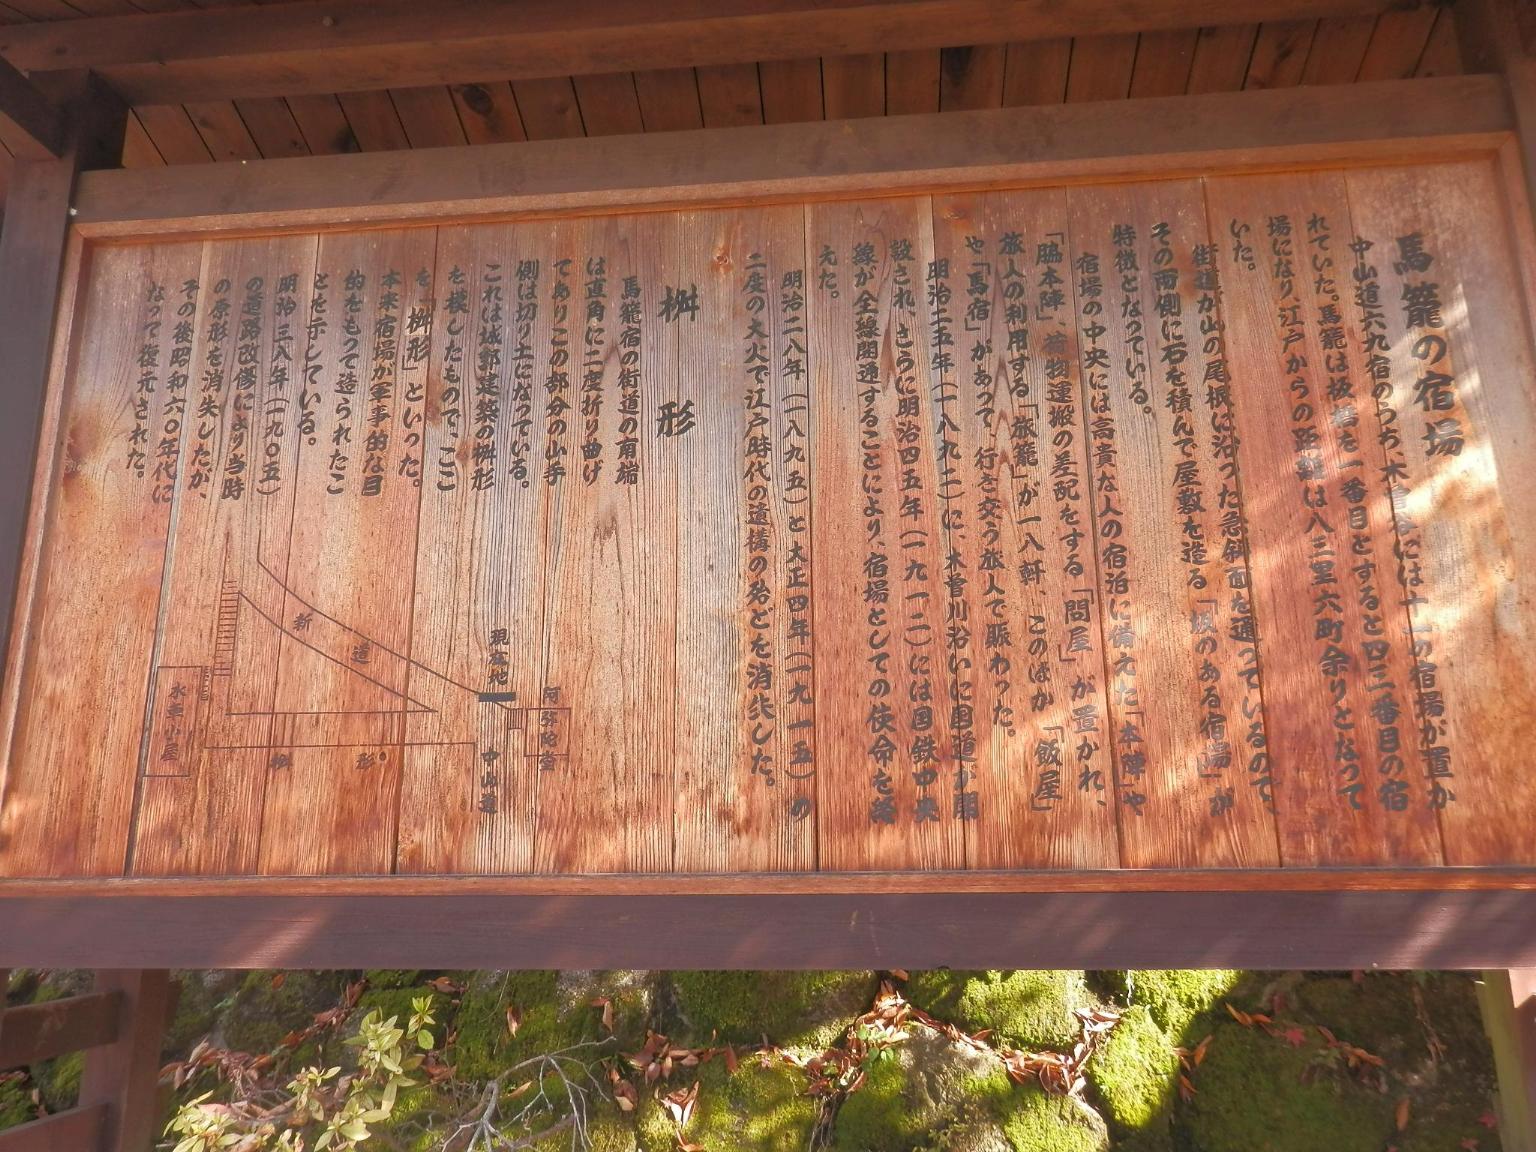 馬籠の宿場
中山道六九宿のうち、木曽谷には十一の宿場が置か
れていた。馬籠は板橋を一番目とすると四三番目の宿
場になり、江戸からの距離は八三里六町余りとなって
いた。
街道が山の尾根に沿った急斜面を通っているので、
その両側に石を積んで屋敷を造る「坂のある宿場」が
特徴となっている。
宿場の中央には高貴な人の宿泊に備えた「本陣」や
「脇本陣」、荷物運搬の差配をする「問屋」が置かれ、
旅人の利用する「旅籠」が一八軒、このほか「飯屋」
や「馬宿」があって、行き交う旅人で賑わった。
明治二五年（一八九二）に、木曽川沿いに国道が開
設され、さらに明治四五年（一九一二）には国鉄中央
線が全線開通することにより、宿場としての使命を終
えた。
明治二八年（一八九五）と大正四年（一九一五）の
二度の大火で江戸時代の遺構の殆どを消失した。
桝形
馬籠宿の街道の南端
は直角に二度折り曲げ
てありこの部分の山手
側は切り土になっている。
これは城郭建築の桝形
を模したもので、ここ
を「桝形」といった。
本来宿場が軍事的な目
的をもって造られたこ
とを示している。
明治三八年（一九〇五）
の道路改修により当時
の原形を消失したが、
その後昭和六〇年代に
なって復元された。
阿弥陀堂
現在地
中山道
新道
桝形
水車小屋